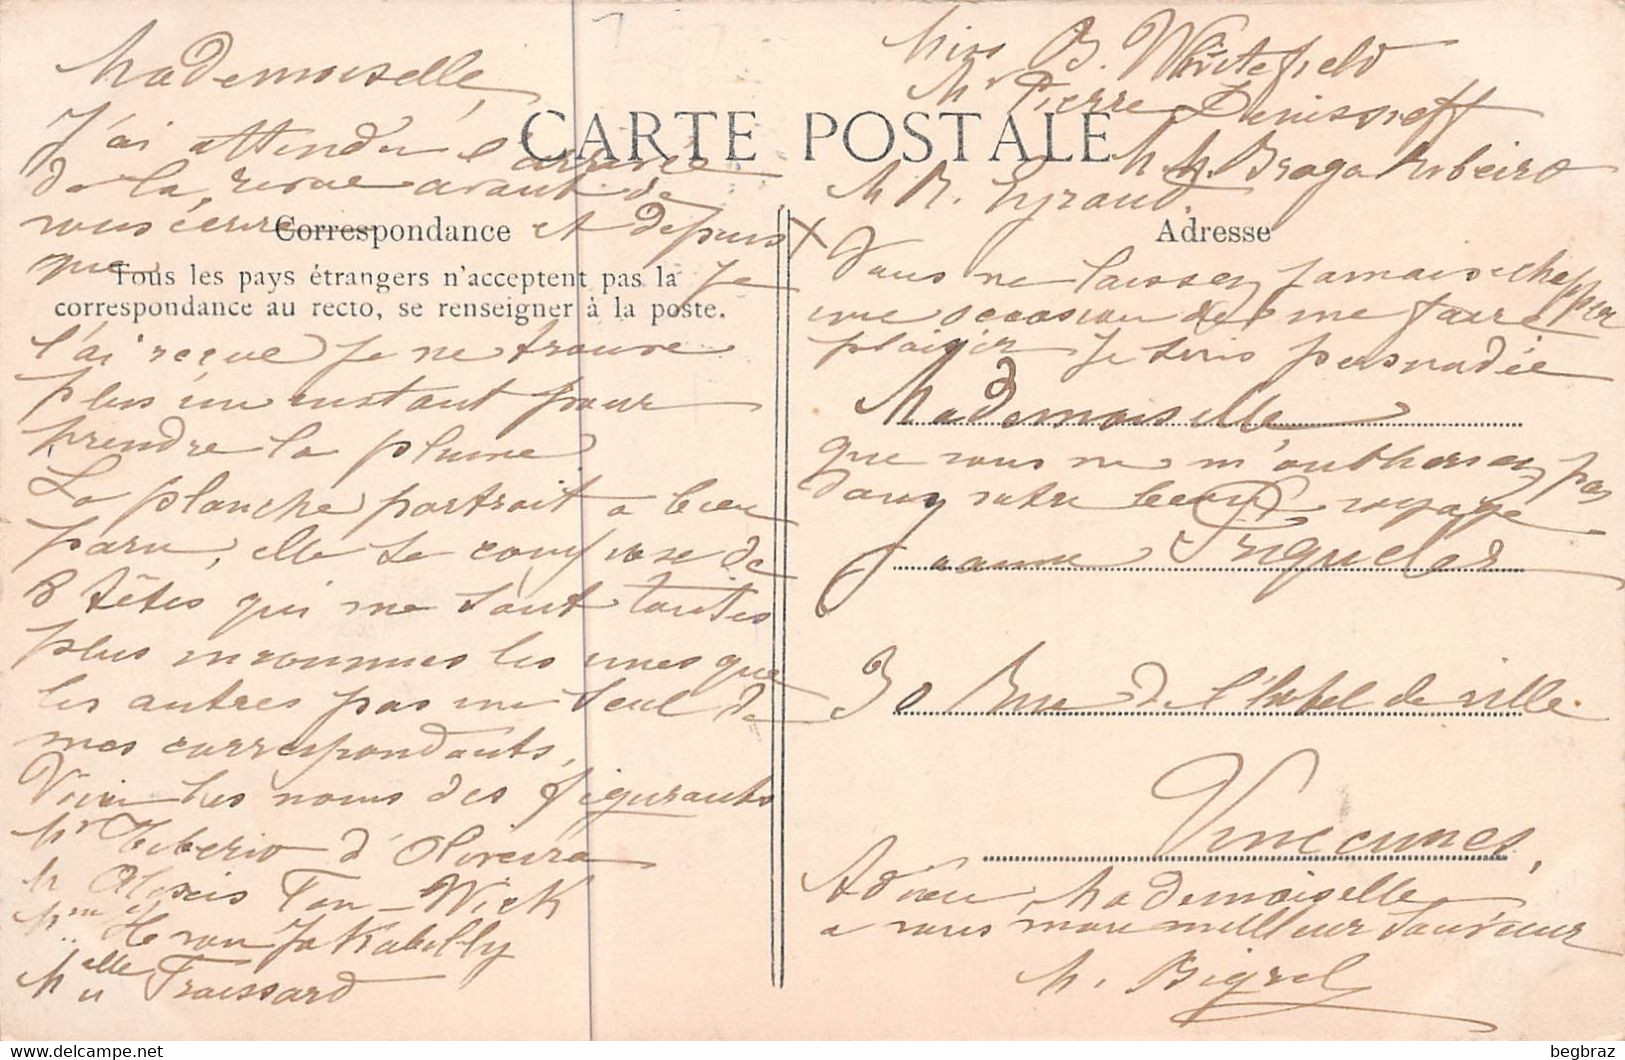 Mademoiselle,
J'ai attendu l'arrivée
de la revue avant de
vous écrire et depuis
que je
l'ai reçue je ne trouve
plus un instant pour
prendre la plume
La planche portrait a bien
paru, elle se compose de
8 têtes qui me sont toutes
plus inconnues les unes que
les autres pas un seul de
mes correspondants,
Voici les noms des figurants
Mr Tiberio d'Oliveira
M Alexis Van-Wick
Mme Heron
Melle Froissard
CARTE POSTALE
Correspondance
Tous les pays étrangers n'acceptent pas la
correspondance au recto, se renseigner à la poste.
Miss B. Whitefield
Mr Pierre Denisoneff
M M. Braga Ribeiro
M R. Gyraud.
Adresse
Vous ne laissez jamais échapper
une occasion de me faire
plaisir je suis persuadée
Mademoiselle
que vous ne m'oublierez pas
dans votre beau voyage
Jeanne
30 Rue de l'hotel de ville.
Vincennes,
Adieu Mademoiselle
a vous mon meilleur souvenir
M. Bigrel
begbraz